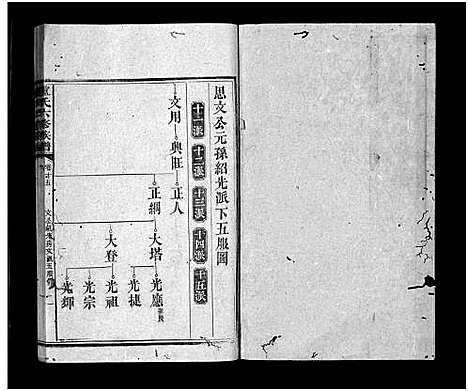 思文公元孫紹光派下五服圖
十一派
十二派
十三派
十四派
十五派
文用
興旺
正人
正綱
大塔
大登
光應
光捷
光祖
光宗
光輝
氏六修族譜